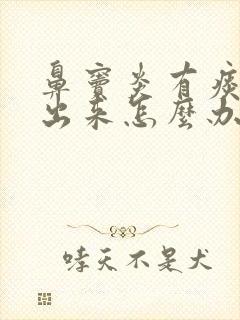 鼻竇炎有痰
出來怎麼办
哮天不是犬